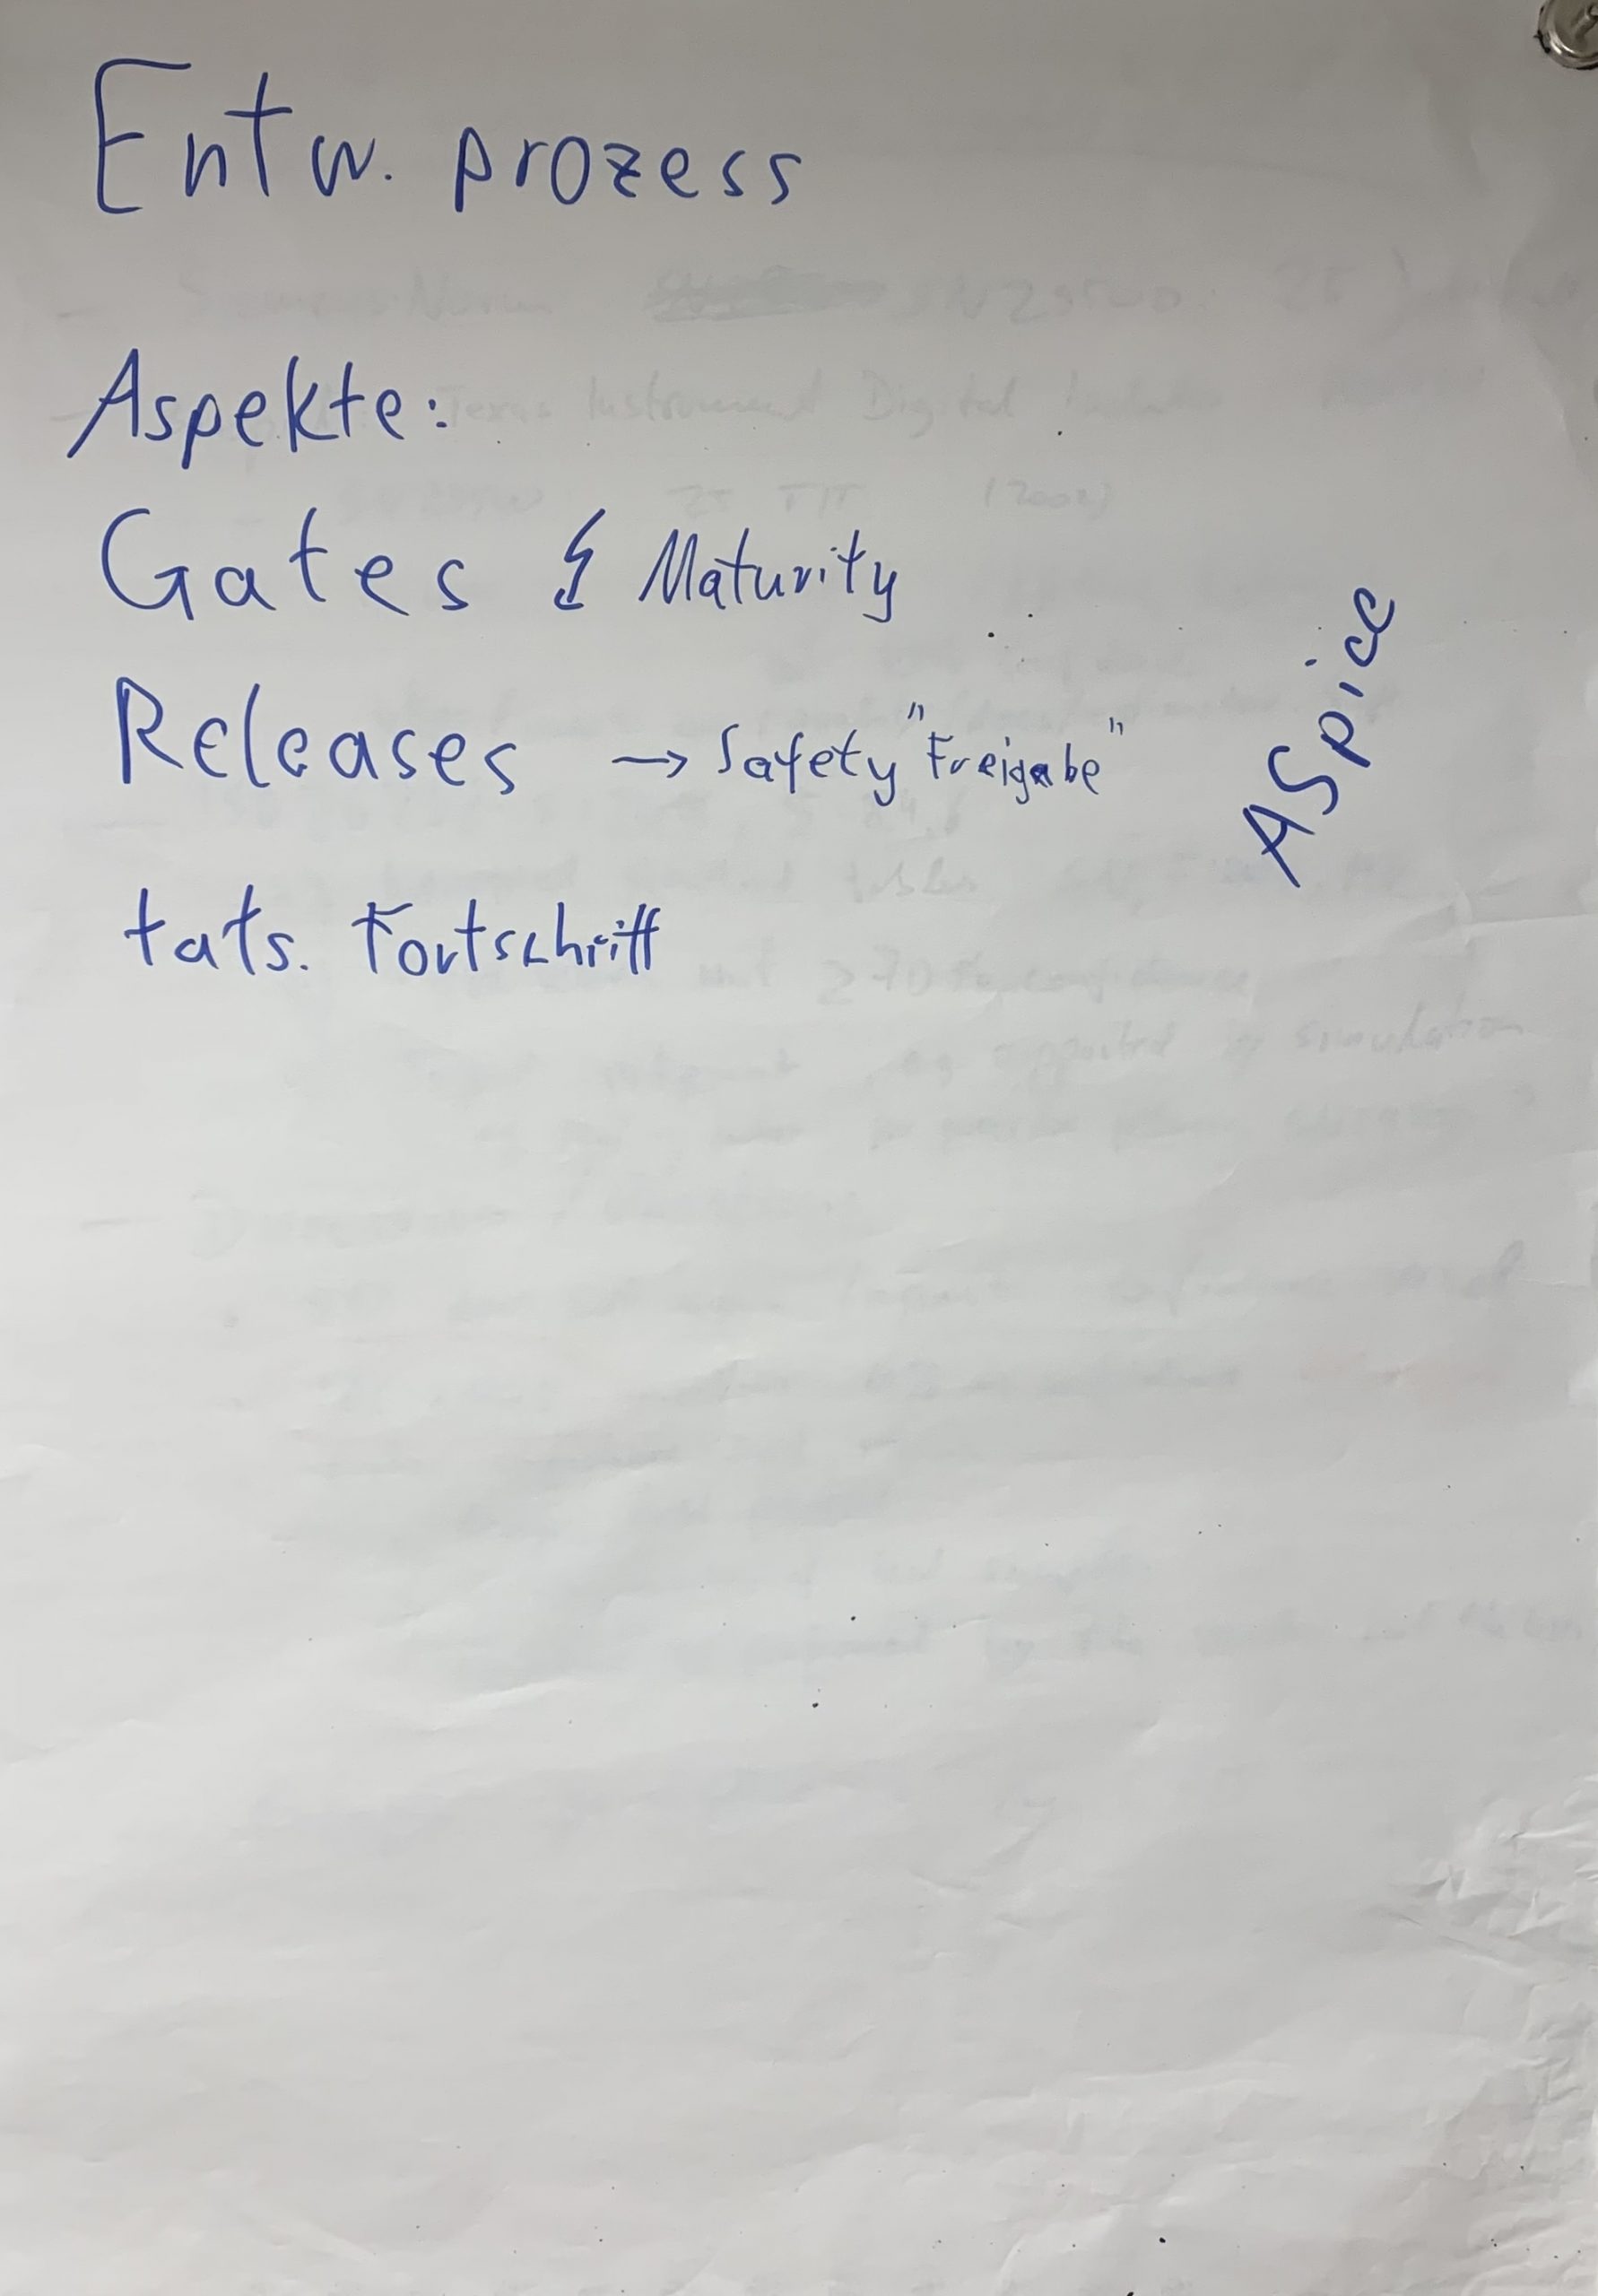 Entw. prozess
Aspekte:
Gates ↯ Maturity
Releases → Safety "Freigabe"
ASpice
tats. Fortschritt